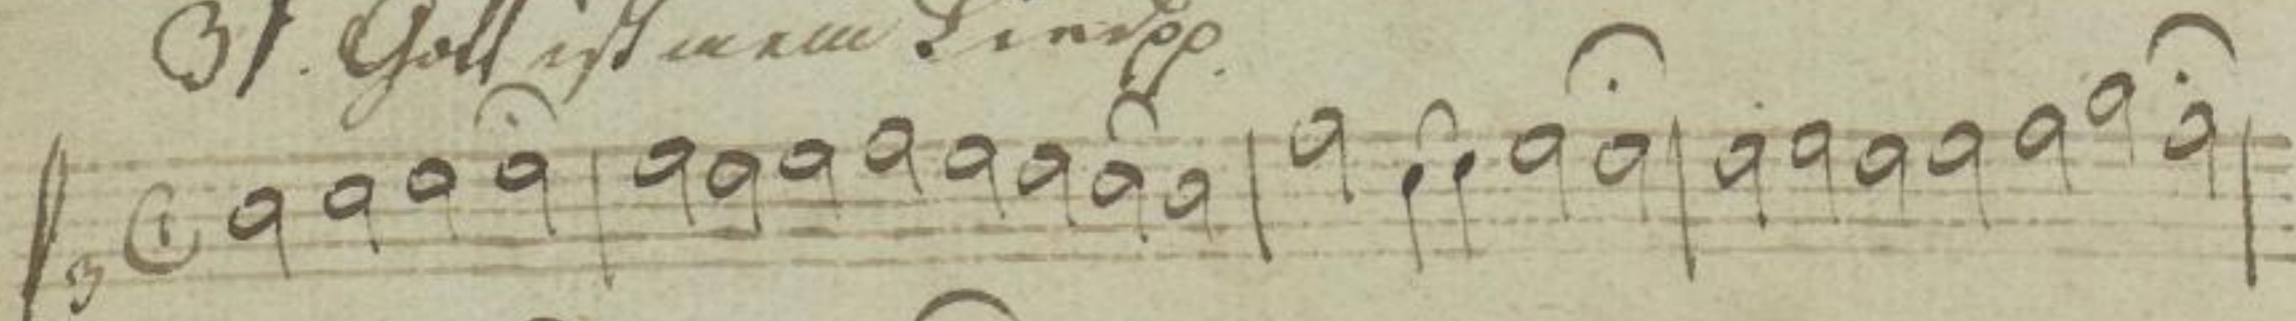 31. Gott ist mein Lied pp.